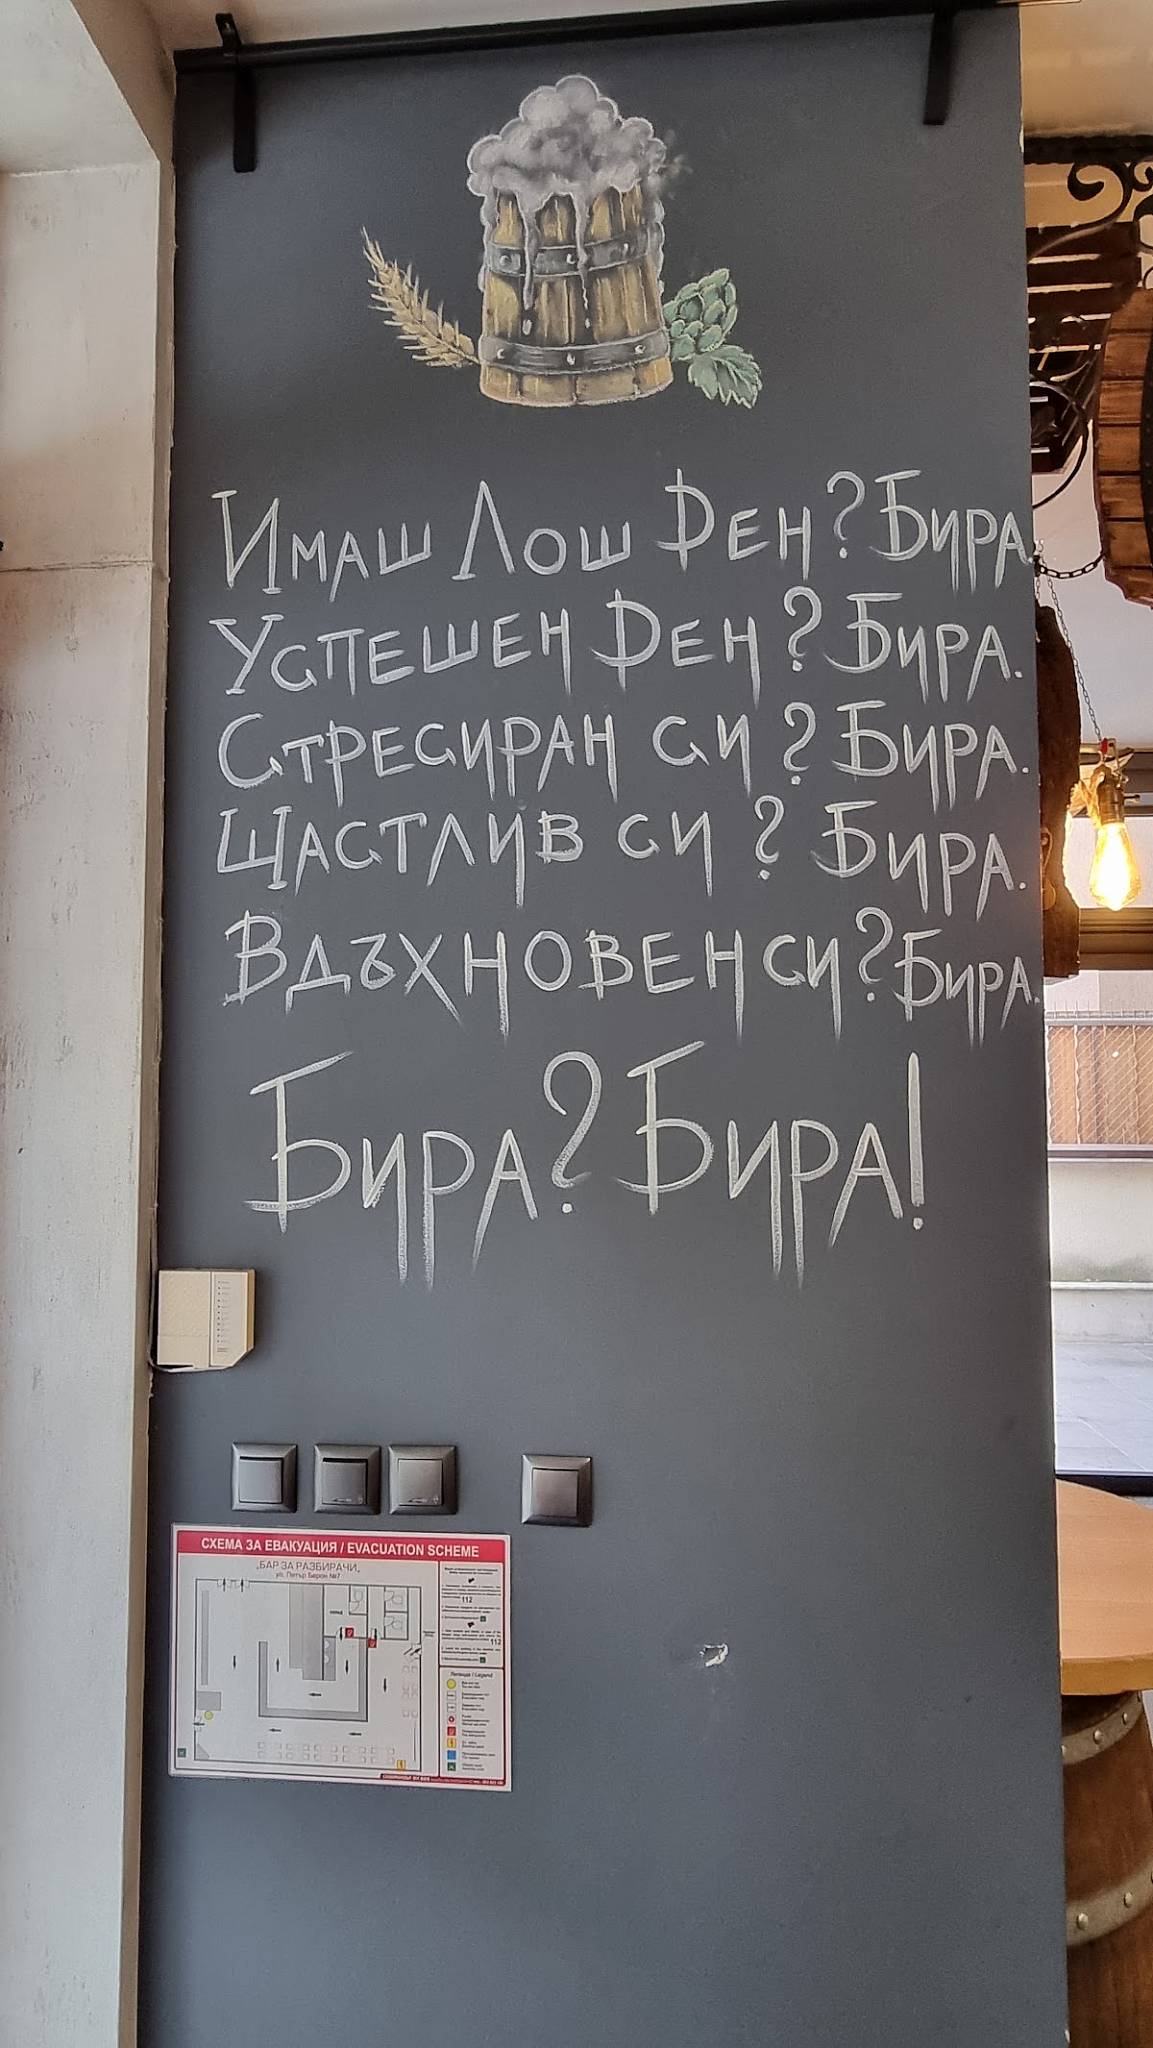 Имаш Лош Ден? Бира.
Успешен Ден? Бира.
Стресиран си? Бира.
Щастлив си? Бира.
Вдъхновен си? Бира.
Бира? Бира!
СХЕМА ЗА ЕВАКУАЦИЯ / EVACUATION SCHEME
„БАР ЗА РАЗБИРАЧИ„
ул. Петър Берон №7
112
112
Легенда / Legend